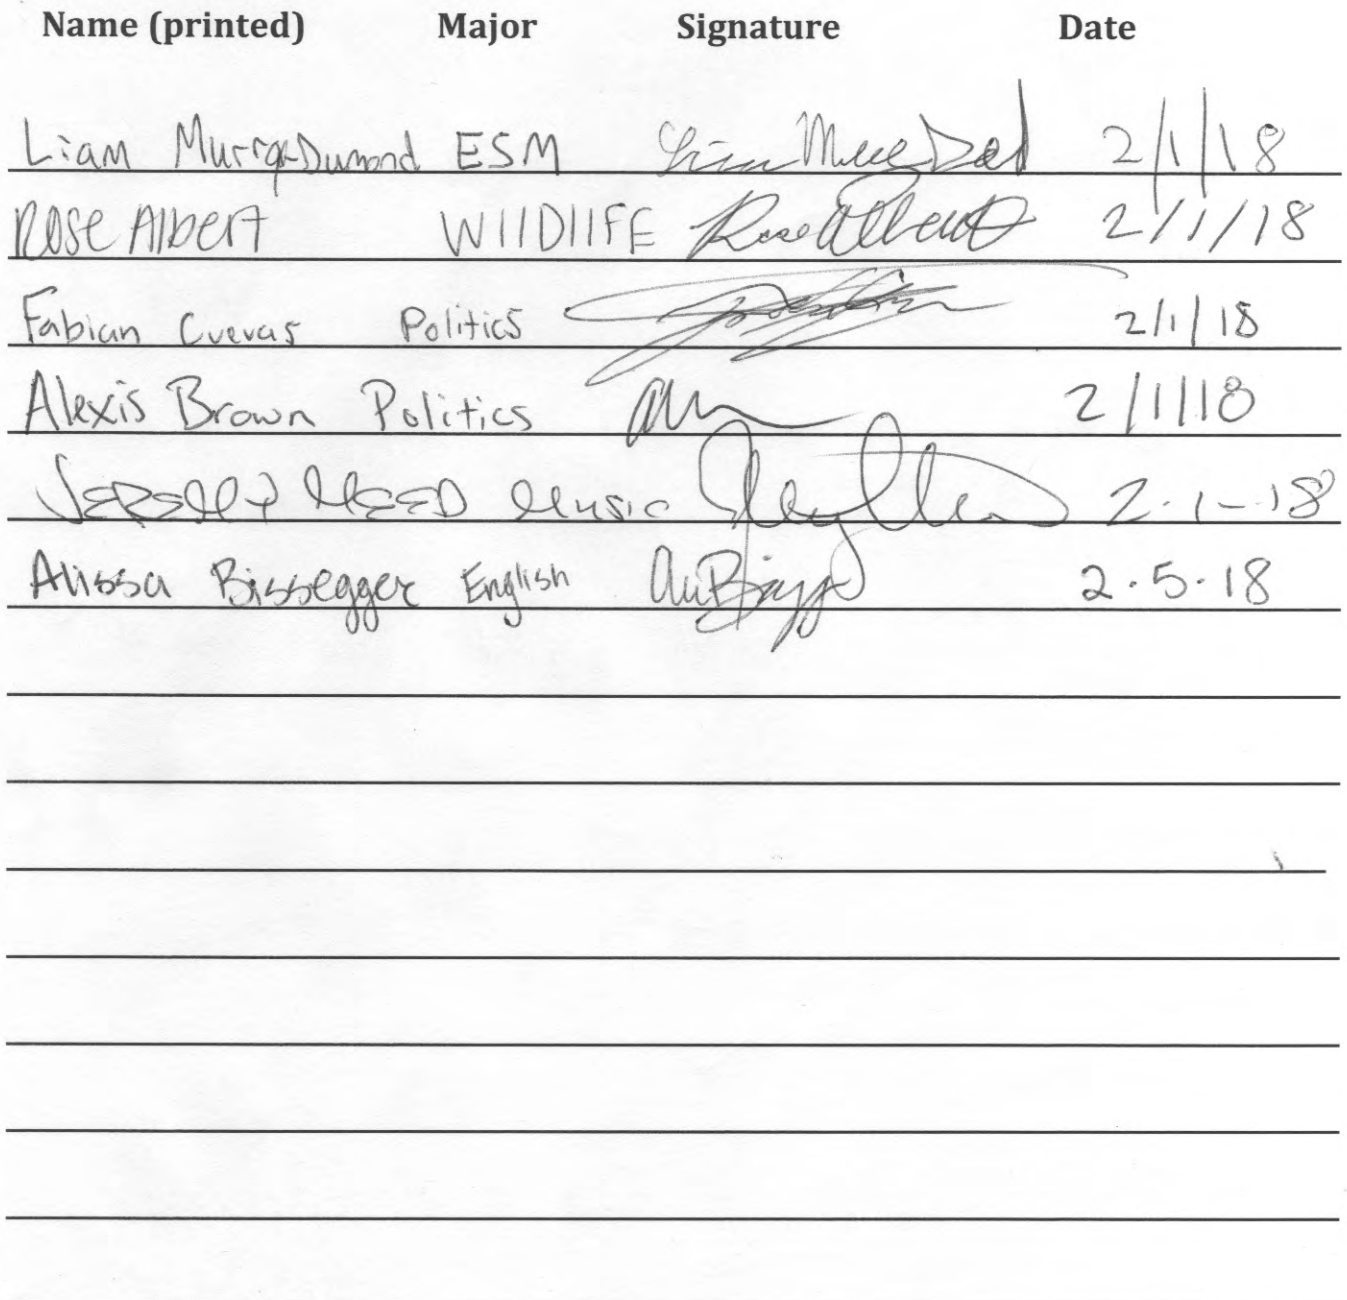 Name (printed) Major Signature Date
Liam ESM 2/1/18
Rose Albert WIlDlIFE Rose Albert 2/1/18
Fabian Cuevas Politics 2/1/18
Alexis Brown Politics 2/1/18
JEREMY MEED Music 2-1-18
Alissa Bissegger English 2.5.18